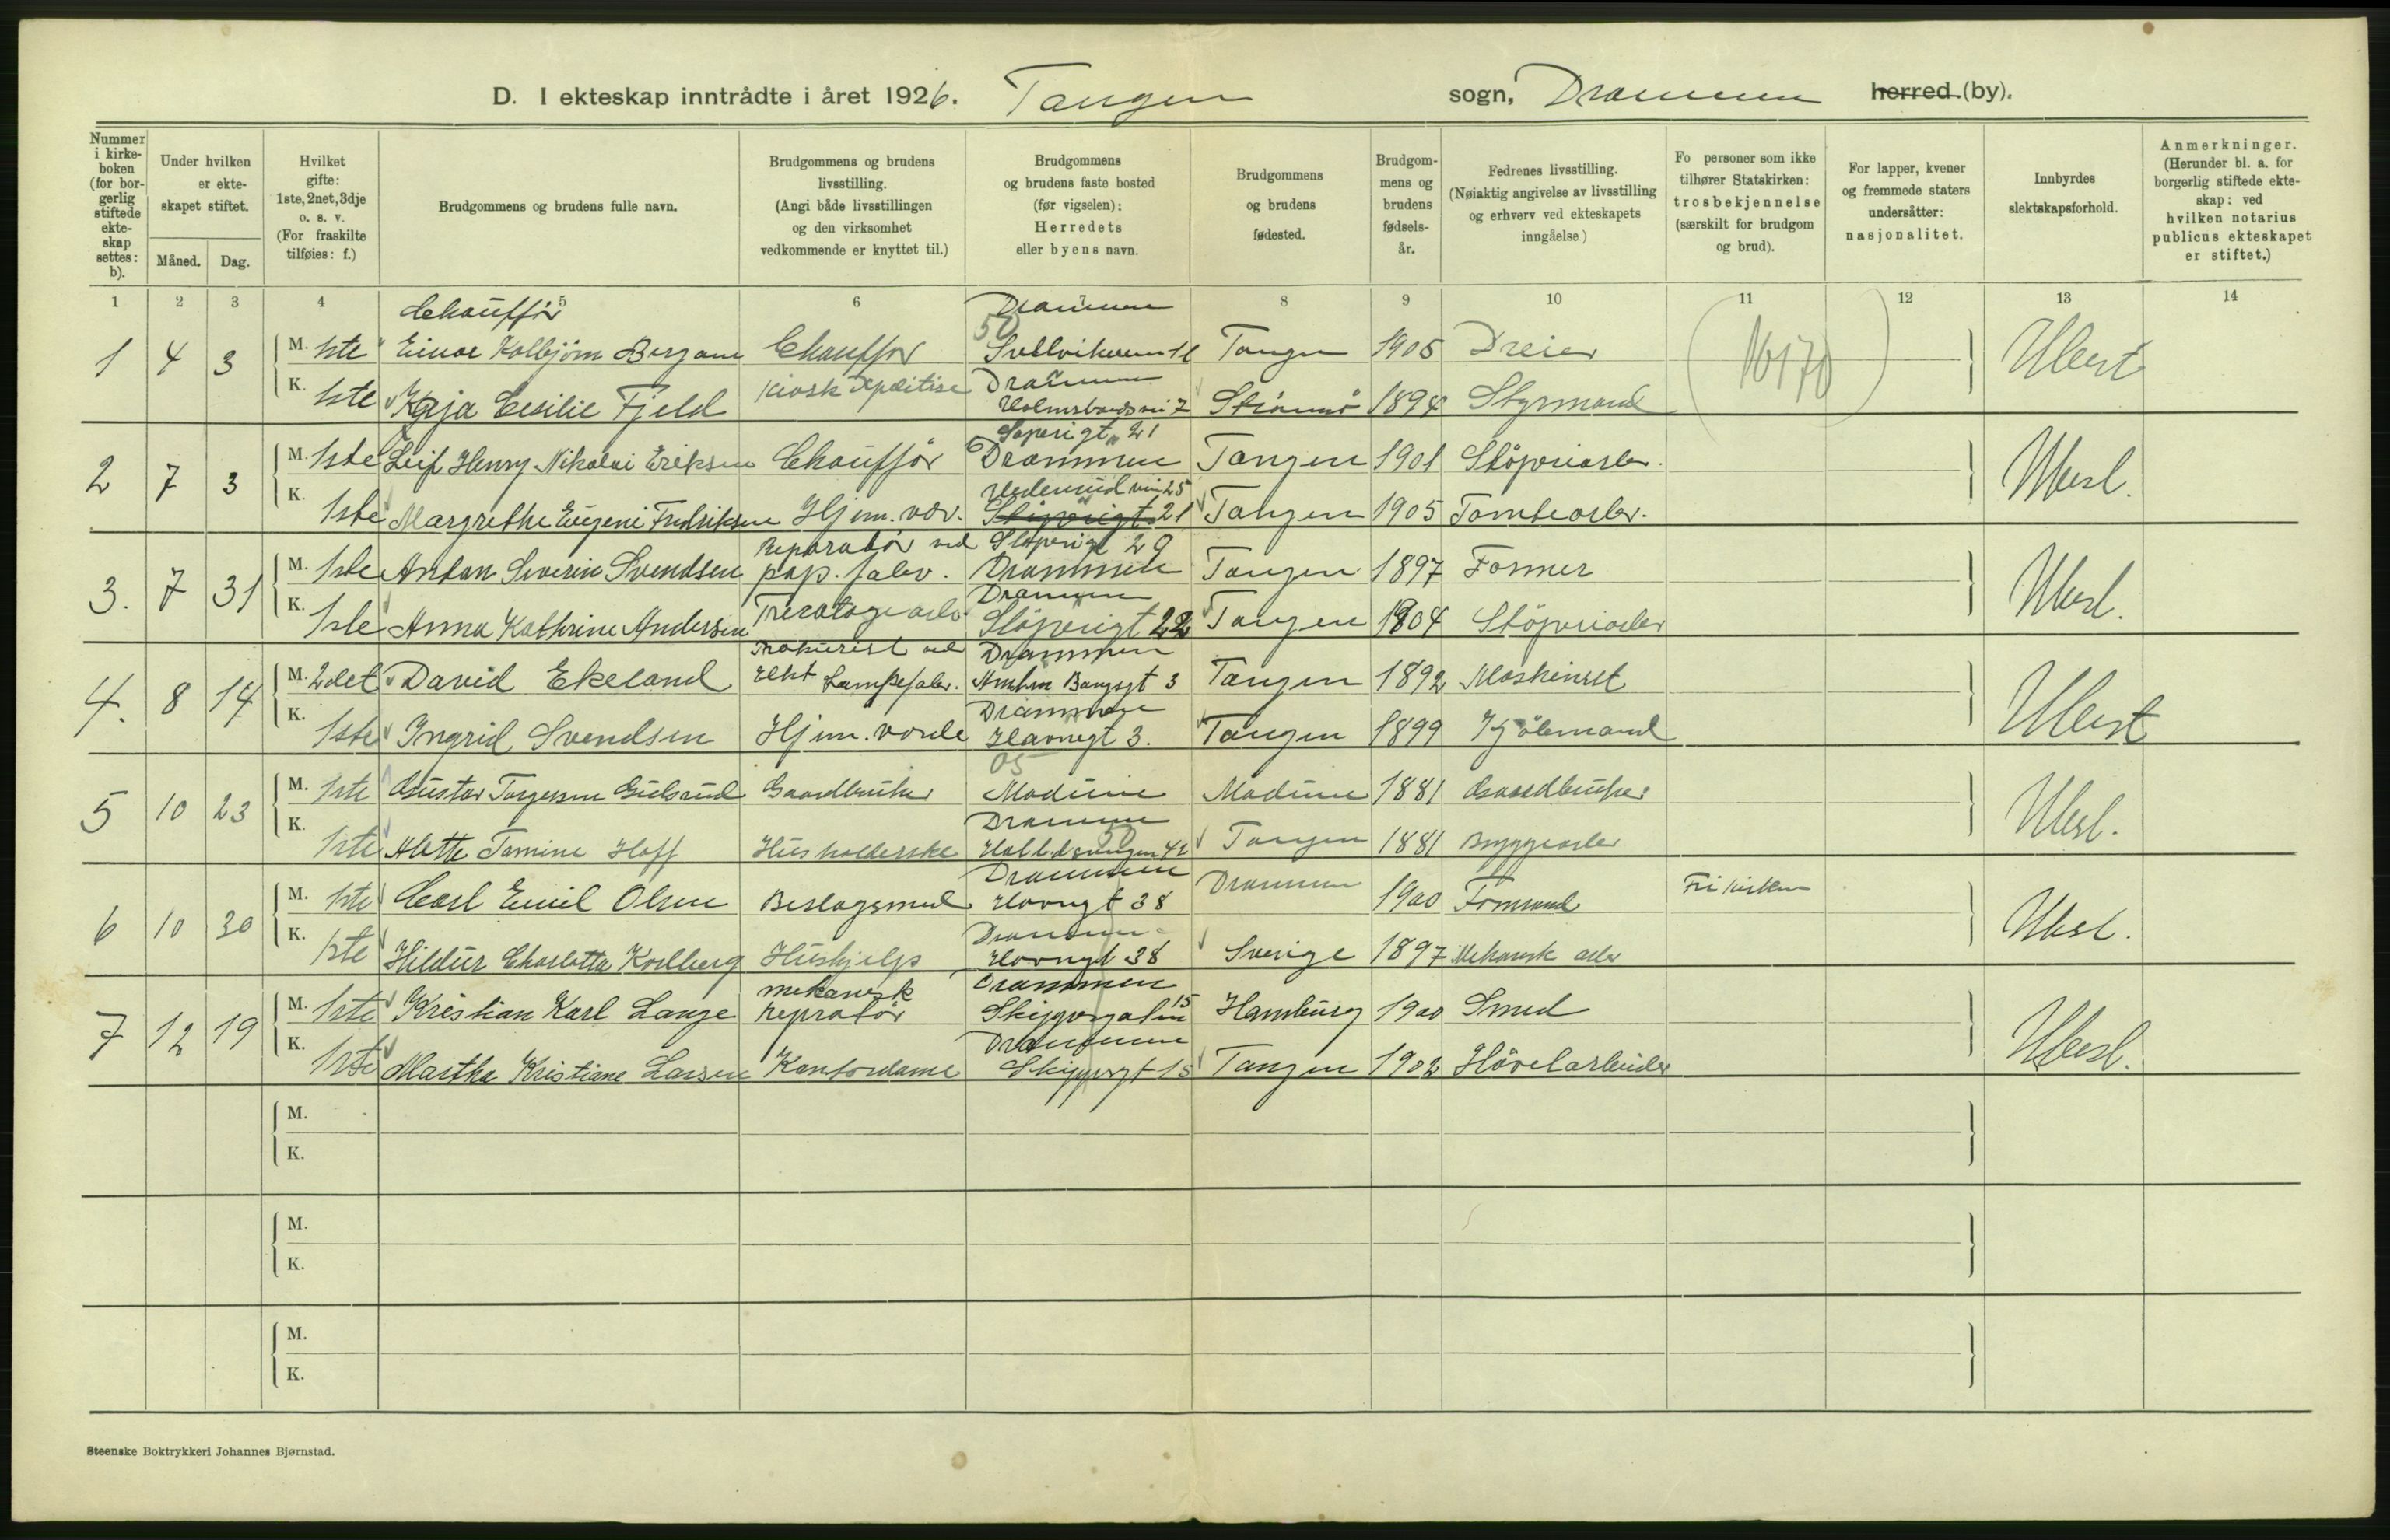 D. I ekteskap inntrådte i året 1926. Tangen sogn, Drammen herred (by).
Nummer i kirkeboken (for borgerlig stiftede ekteskap settes: b).
Under hvilken er ekteskapet stiftet.
Måned. Dag.
Hvilket gifte: 1ste, 2net, 3dje o. s. v. (For fraskilte tilføies: f.)
Brudgommens og brudens fulle navn.
Brudgommens og brudens livsstilling. (Angi både livsstillingen og den virksomhet vedkommende er knyttet til.)
Brudgommens og brudens faste bosted (før vigselen): Herredets eller byens navn.
Brudgommens og brudens fødested.
Brudgommens og brudens fødselsår.
Fedrenes livsstilling. (Nøiaktig angivelse av livsstilling og erhverv ved ekteskapets inngåelse)
Fo personer som ikke tilhører Statskirken: trosbekjennelse (særskilt for brudgom og brud).
For lapper, kvener og fremmede staters undersåtter: nasjonalitet.
Innbyrdes slektskapsforhold.
Anmerkninger. (Herunder bl. a. for borgerlig stiftede ekteskap: ved hvilken notarius publicus ekteskapet er stiftet.)
1 2 3 4 5 6 7 8 9 10 11 12 13 14
Chauffør Drammen
50
1 4 3 M. 1ste Einar Kolbjørn Chauffør Svelvikveien Tangen 1905 Dreier (16170) Ubesl
K. 1ste Kaja Cecilie Fjeld Kiosk Drammen Holmsbovei 7 Strømsø 1894 Styrmand
Støperigt 21
2 7 3 M. 1ste Leif Henry Nikolai Eriksen Chauffør Drammen Tangen 1901 Støperiarb. Ubesl.
K. 1ste Margrethe Eugeni Fredriksen Hjem. vær. Støperigt 21 Tangen 1905 Tomtearb.
Reparatør ved Støperigt 29
3. 7 31 M. 1ste Anton Severin Svendsen pap. fabr. Drammen Tangen 1897 Former Ubesl.
Drammen
K. 1ste Anna Kathrine Andersen Tricotagearb. Støperigt 22 Tangen 1904 Støperiarb
Prokurist ved Drammen
4. 8 14 M. 2det David Ekeland Elekt Lampefabr. Anton Bangsgt 3 Tangen 1892 Maskinist Ubesl
Drammen
K. 1ste Ingrid Svendsen Hjem. værde Havnegt 3. Tangen 1899 Kjøbmand
05
5 10 23 M. 1ste Gustav Torgersen Gulsrud Gaardbruker Modum Modum 1881 Gaardbruker Ubesl.
Drammen
50
K. 1ste Alette Tomine Hoff Husholderske Tangen 1881 Bryggearb
Drammen
6 10 30 M. 1ste Carl Emil Olsen Beslagsmed Havnegt 38 Drammen 1900 Formand Frikirken Ubesl.
Drammen
K. 1ste Hildur Charlotta Hushjelp Havnegt 38 Sverige 1897 Mekanisk arb
mekanisk Drammen
7 12 19 M. 1ste Kristian Karl Lange Repratør Skippergaten 15 Hamburg 1900 Smed Ubesl.
Drammen
K. 1ste Martha Kristiane Larsen Kontordame Skippergt 15 Tangen 1902 Høvelarbeider
M.
K.
M.
K.
M.
K.
Steenske Boktrykkeri Johannes Bjørnstad.